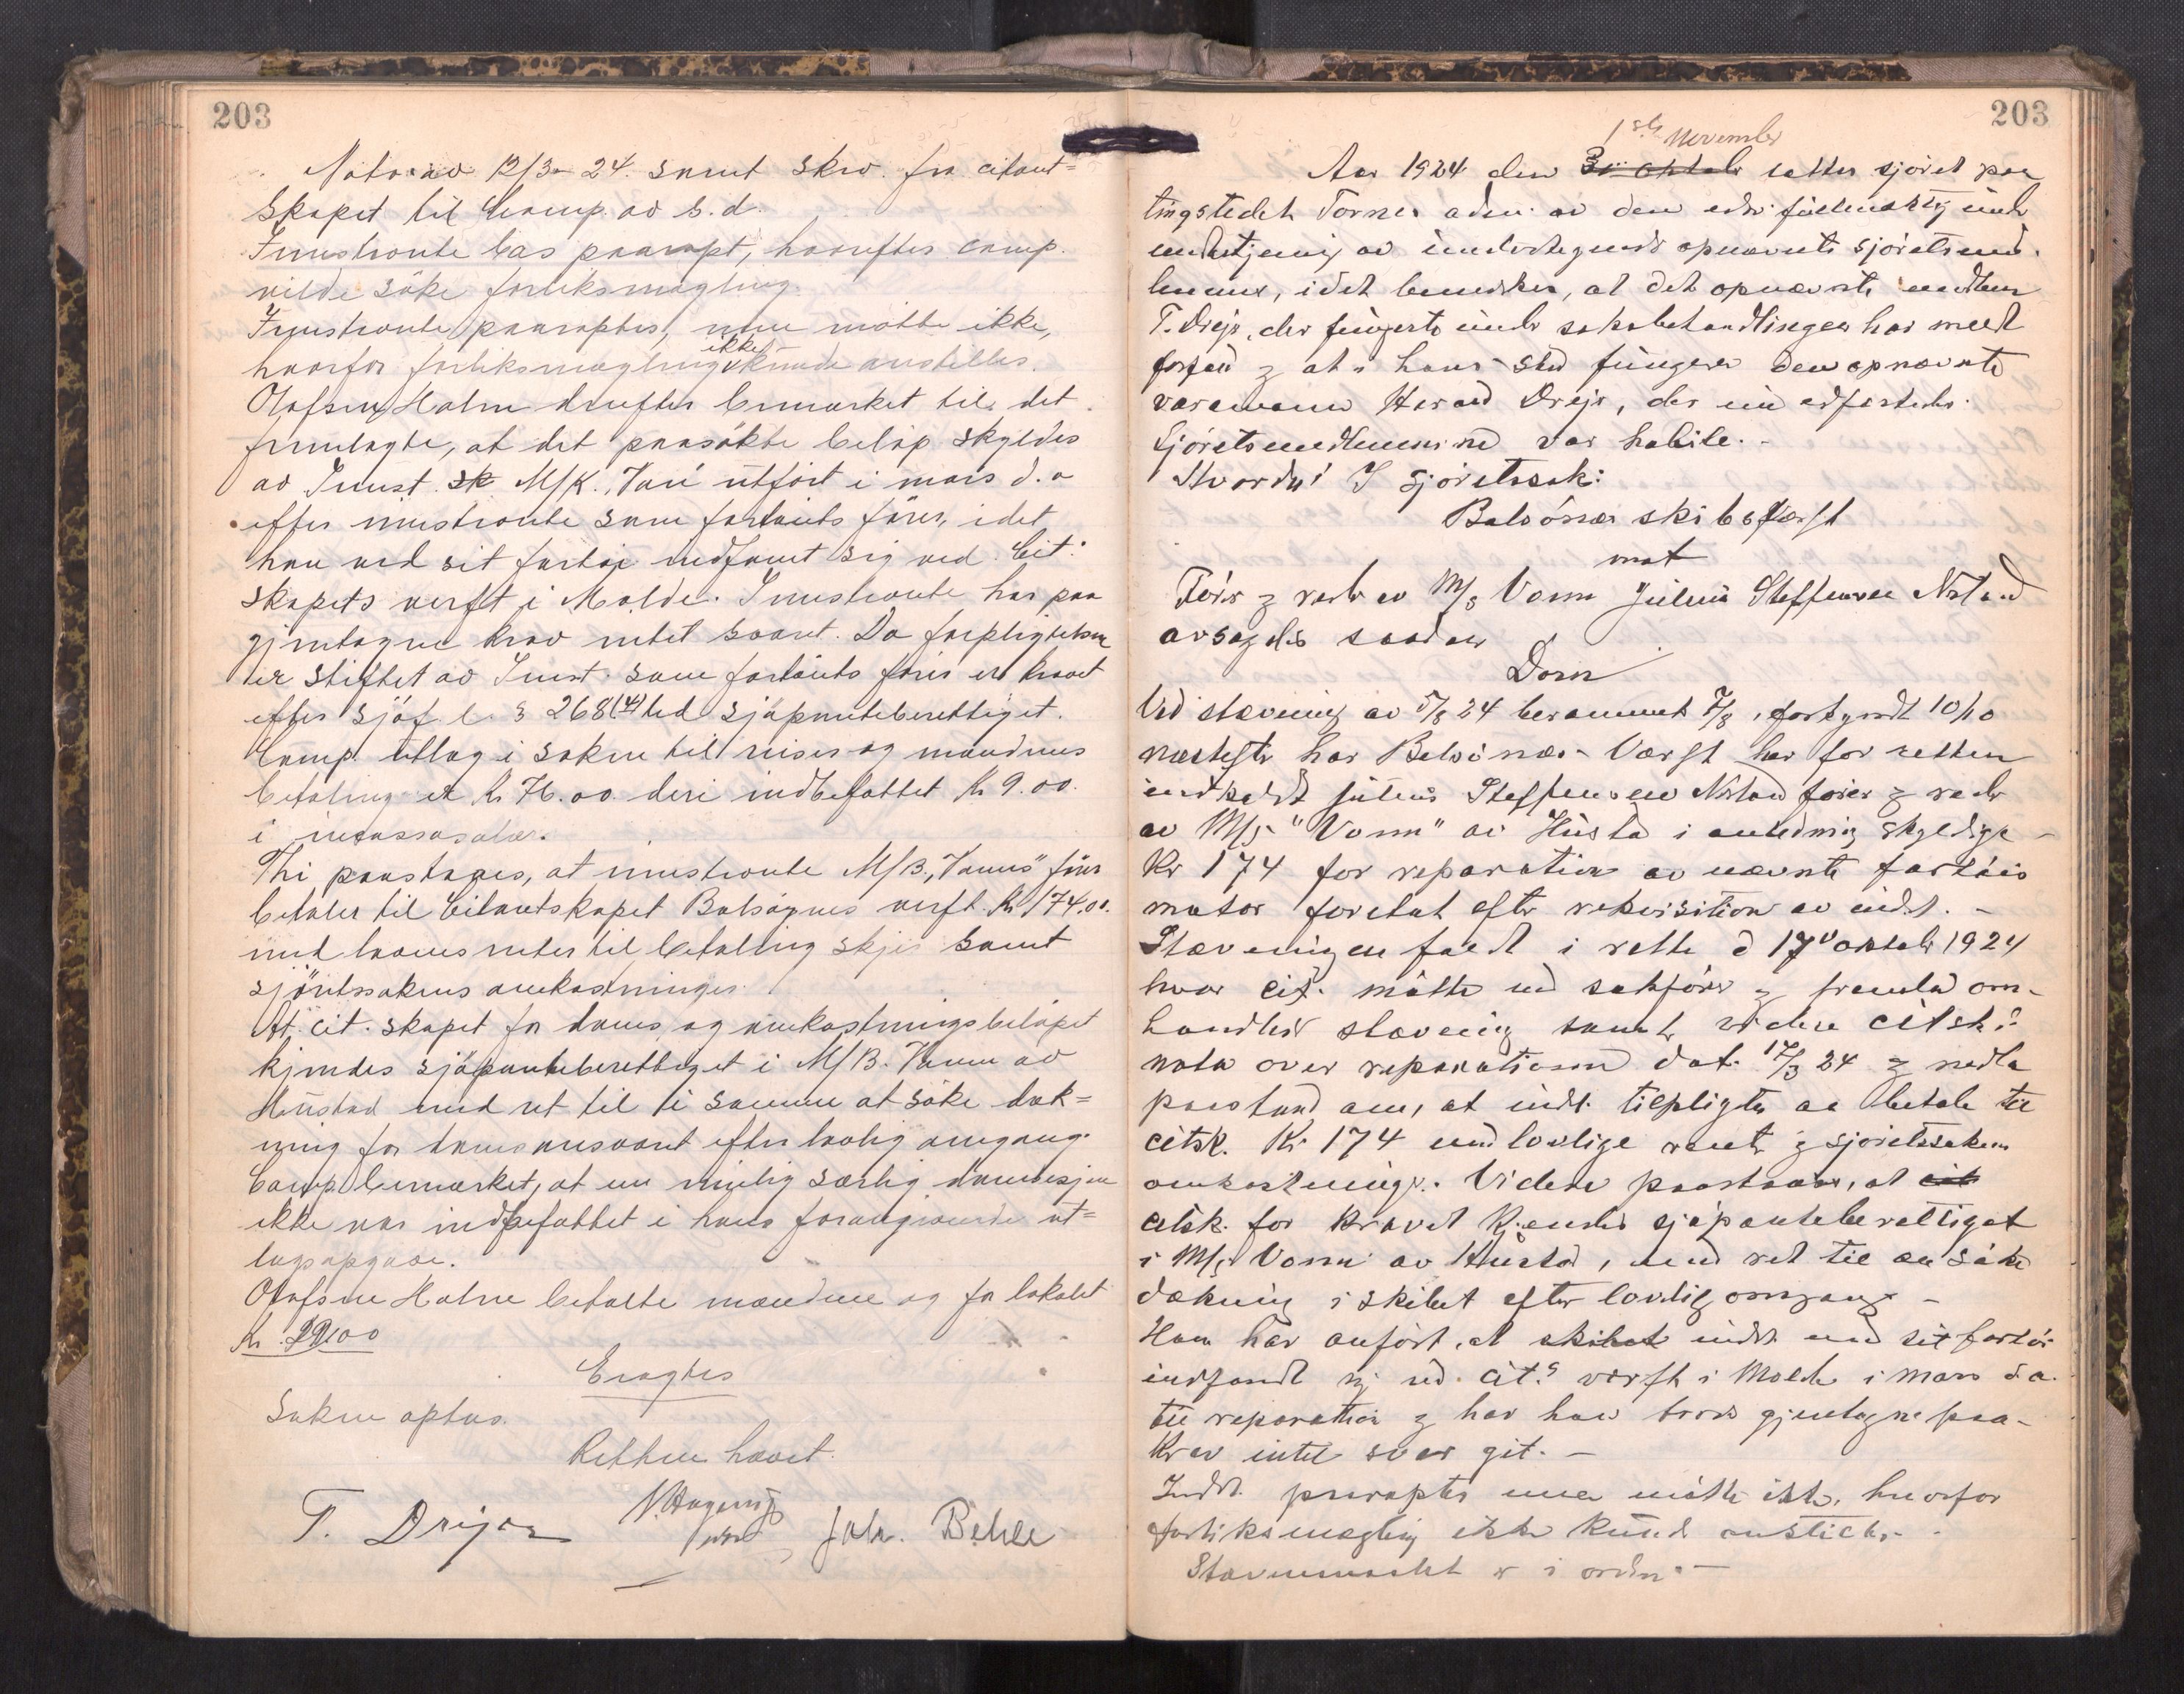 203
Nota av 12/3-24. samt skrv. fra citant=
skapet til Comp. av s.d.
Innstevnte bas paaropt, hvorefter comp.
vilde söke forliksmægling.
Innstevnte paaroptes, men mötte ikke,
hvorfor forliksmægling ikke kunde anstilles.
Olafsen Holm derefter bemerket til det
fremlagte, at det paasökte belöp skyldes
av Innst. M/K. utfört i mars d.a
efter innstevnte som fartöiets förer, idet
han med sit fartöi indfant sig ved Cit.
skapets verft i Molde. Innstevnte har paa
gjentagne krav intet svaret. Da forpligtelsen
er stiftet av Innst. som fartöiets förer er kravet
efter sjöf. l. § 268 (4) led sjöpanteberettiget.
Comp. utlæg i saken til reiser og mændenes
betaling er kr 76.00 deri indbefattet kr 9.00
i incassosalær.
Thi paastaaes, at innstevnte M/B. „Vonn" förer
betaler til Citantskapet Bolsönes verft. kr 174.00.
med lovens renter til betaling skjer samt
sjöretssakens omkostninger.
At cit. skapet for doms og omkostningsbelöpet
kjendes sjöpanteberettiget i M/B. Vonn av
Hustad med ret til i samme at söke dæk=
ning for domsansvaret efter lovlig omgang.
Comp. bemerket, at en mulig særlig domsutgift
ikke var indbefattet i hans foranstaaende ut=
lægsopgave.
Olafsen Holm betalte mændene og for lokalet
kr. 22.00
Eragtes
Saken optas.
Retten hævet.
T. Drejer Joh. Behle
203
1ste November
Aar 1924 den 31 oktober sattes sjöret paa
tingstedet Tornes adm. av den edsv. fuldmægtig under
medbetjening av undertegnede opnævnte sjöretsmed-
lemmer, idet bemerkes, at det opnævnte medlem
T. Drejer, der fungerte under saksbehandlingen har meldt
forfald & at i hans sted fungerer den opnævnte
varamann Harald Drejer, der nu edfæstedes.
Sjöretsmedlemmerne var habile. -
Hvorda: I sjöretssak:
Bolsönes skibsværft
mot
Förer & reder av M/S Vonn Julius Steffensen Nistad
avsagdes saadan
Dom
Ved stevning av 5/8 24 berammet 7/8, forkyndt 10/10
næstefter har Bolsönes Værft her for retten
indkaldt Julius Steffensen Nistad förer & reder
av M/S "Vonn" av Hustad i anledning skyldige
Kr 174 for reparation av nævnte fartöis
motor foretat efter rekvisition av indst. -
Stævningen faldt i rette d 17de oktober 1924
hvor cit. mötte ved sakförer & fremla om-
handlede stævning samt videre citsk.s
nota over reparationen dat. 12/3 24 & nedla
paastand om, at indst. tilpligtes aa betale til
citsk. Kr 174 med lovlige renter & sjöretssakens
omkostninger. Videre paastaaes, at cit
citsk. for kravet kjendes sjöpanteberettiget
i M/S Vonn av Hustad, med ret til aa söke
dækning i skibet efter lovlig omgang -
Han har anfört, at skibet indst. med sit fartöi
indfandt sig ved cit.s værft i Molde i mars d.a.
til reparation & har han trods gjentagne paa-
krav intet svar git. -
Indst. paaroptes men mötte ikke, hvorfor
forliksmægling ikke kunde anstilles. -
Stævnemaalet er i orden. -